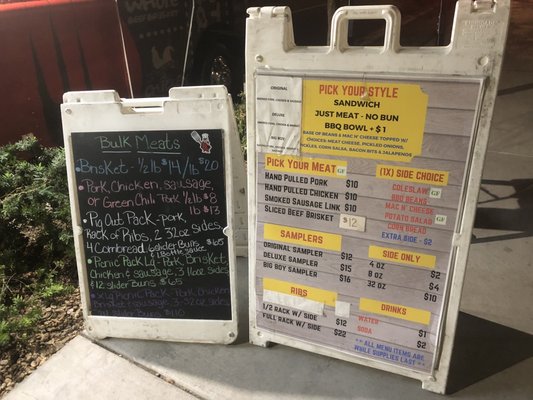 Bulk Meats
Brisket - 1/2 lb $14 / lb $20
Pork, Chicken, Sausage
or Green Chili Pork 1/2 lb $8
lb $13
Pig Out Pack - pork,
Rack of Ribs, 2 32oz sides
4 Cornbread, 6 slider Buns
Picnic Pack 1 lb Pork, Brisket
Chicken & sausage 3 16oz sides
12 slider Buns $65
Pork, Chicken
Brisket, Sausage, 32oz sides
slider Buns
ORIGINAL
DELUXE
BIG BOY
PICK YOUR STYLE
SANDWICH
JUST MEAT - NO BUN
BBQ BOWL + $1
BASE OF BEANS & MAC N' CHEESE TOPPED W/
CHOICE: MEAT, SAUCE, PICKLED ONIONS,
PICKLES, CORN SALSA, BACON BITS & JALAPENOS
PICK YOUR MEAT
HAND PULLED PORK $10
HAND PULLED CHICKEN $10
SMOKED SAUSAGE LINK $10
SLICED BEEF BRISKET $12
(1X) SIDE CHOICE
COLESLAW GF
BBQ BEANS
MAC N' CHEESE
POTATO SALAD GF
CORN BREAD
EXTRA SIDE - $2
SAMPLERS
ORIGINAL SAMPLER $12
DELUXE SAMPLER $15
BIG BOY SAMPLER $16
SIDE ONLY
4 OZ $2
8 OZ $4
32 OZ $10
RIBS
1/2 RACK W/ SIDE $12
FULL RACK W/ SIDE $22
DRINKS
WATER $1
SODA $2
** ALL MENU ITEMS ARE
WHILE SUPPLIES LAST **